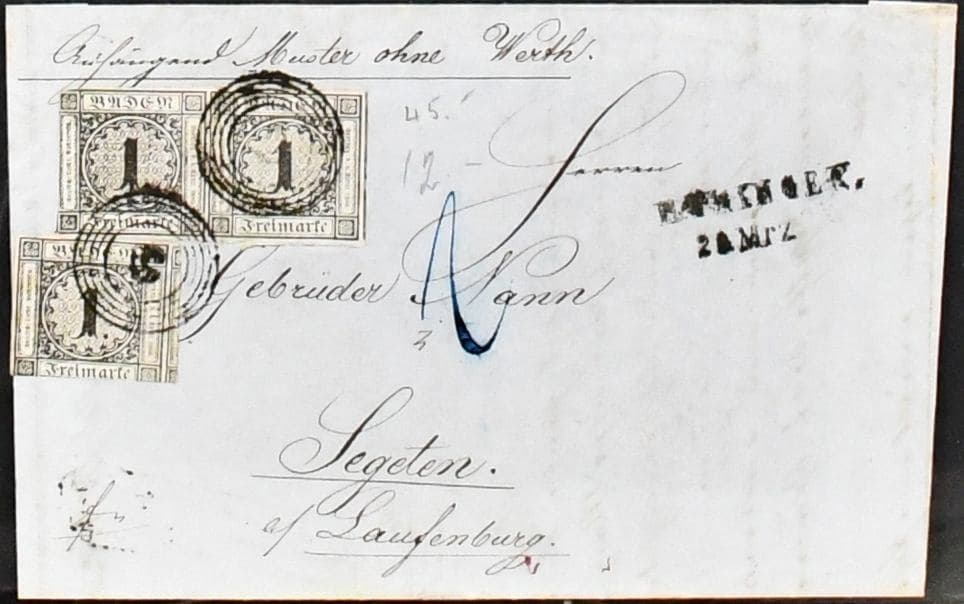 Anhängend Muster ohne Werth.
BADEN
1
Freimarke
BADEN
1
Freimarke
45.
12 -
Herren
20 MRZ
BADEN
1
Freimarke
5
Gebrüder Nann
Segeten.
a/ Laufenburg.